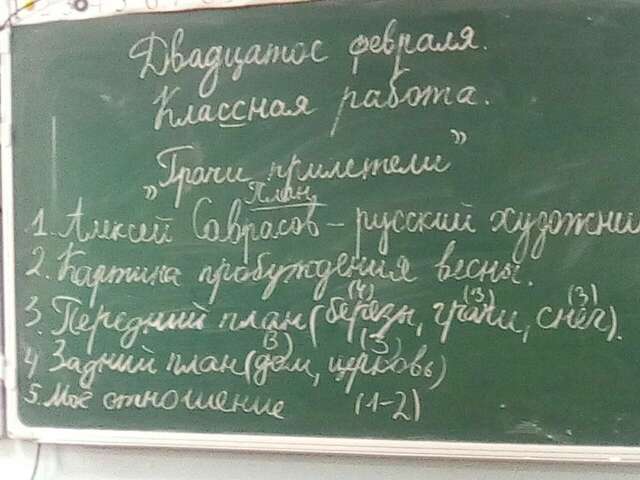 Двадцатое февраля.
Классная работа.
„Грачи прилетели”
План
1. Алексей Саврасов – русский художни
2. Картина пробуждения весны.
3. Передний план (берёзы, грачи, снег).
(4) (3) (3)
4 Задний план (дом, церковь)
(3) (3)
5. Моё отношение (1-2)